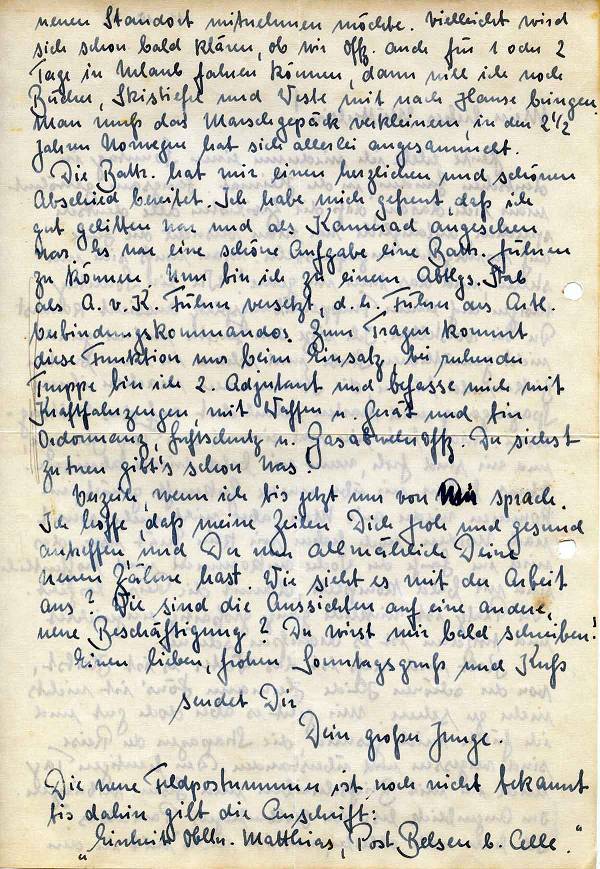 neuen Standort mitnehmen möchte. Vielleicht wird
sich schon bald klären, ob wir Offz. auch für 1 oder 2
Tage in Urlaub fahren können, dann will ich noch
Bücher, Skistiefel und Weste mit nach Hause bringen.
Man muß das Marschgepäck verkleinern, in den 2 1/2
Jahren Norwegen hat sich allerlei angesammelt.
Die Battr. hat mir einen herzlichen und schönen
Abschied bereitet. Ich habe mich gefreut, daß ich
gut gelitten war und als Kamerad angesehen
war. Es war eine schöne Aufgabe eine Battr. führen
zu können. Nun bin ich zu einem Abtlgs. Stab
als A. v. K. Führer versetzt, d. h. Führer des Artl.
Verbindungskommandos. Zum Tragen kommt
diese Funktion nur beim Einsatz, bei ruhender
Truppe bin ich 2. Adjutant und befasse mich mit
Kraftfahrzeugen, mit Waffen u. Gerät und bin
Ordonnanz, Luftschutz u. Gasabwehroffz. Du siehst
zu tun gibt's schon was.
Verzeih, wenn ich bis jetzt nur von mir sprach.
Ich hoffe, daß meine Zeilen Dich froh und gesund
antreffen und Du nun allmählich Deine
neuen Zähne hast. Wie sieht es mit der Arbeit
aus? Wie sind die Aussichten auf eine andere,
neue Beschäftigung? Du wirst mir bald schreiben!
Einen lieben, frohen Sonntagsgruß und Kuß
sendet Dir
Dein großer Junge.
Die neue Feldpostnummer ist noch nicht bekannt
bis dahin gilt die Anschrift:
„Einheit Obltn. Matthias, Post Belsen b. Celle."